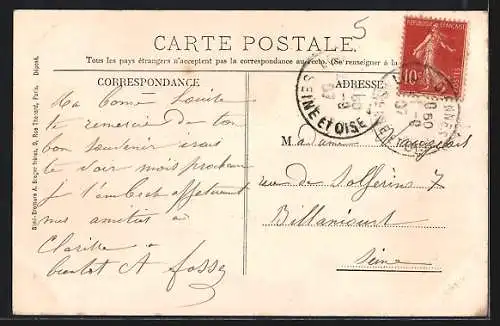 5
CARTE POSTALE.
Tous les pays étrangers n'acceptent pas la correspondance au recto. (Se renseigner à la
CORRESPONDANCE
ADRESSE
RÉPUBLIQUE FRANÇAISE
10
SEINE ET OISE
Ma bonne Louise
te remercie de ton
bon souvenir
te voir mois prochain
je t'embrasse affectueusement
mes amitiés à
Clarisse
bientôt A
Madame
rue de Solferino 7
Billancourt
Seine
Simi-Bromure A. Breger frères, 9, Rue Thénard, Paris. Déposé.